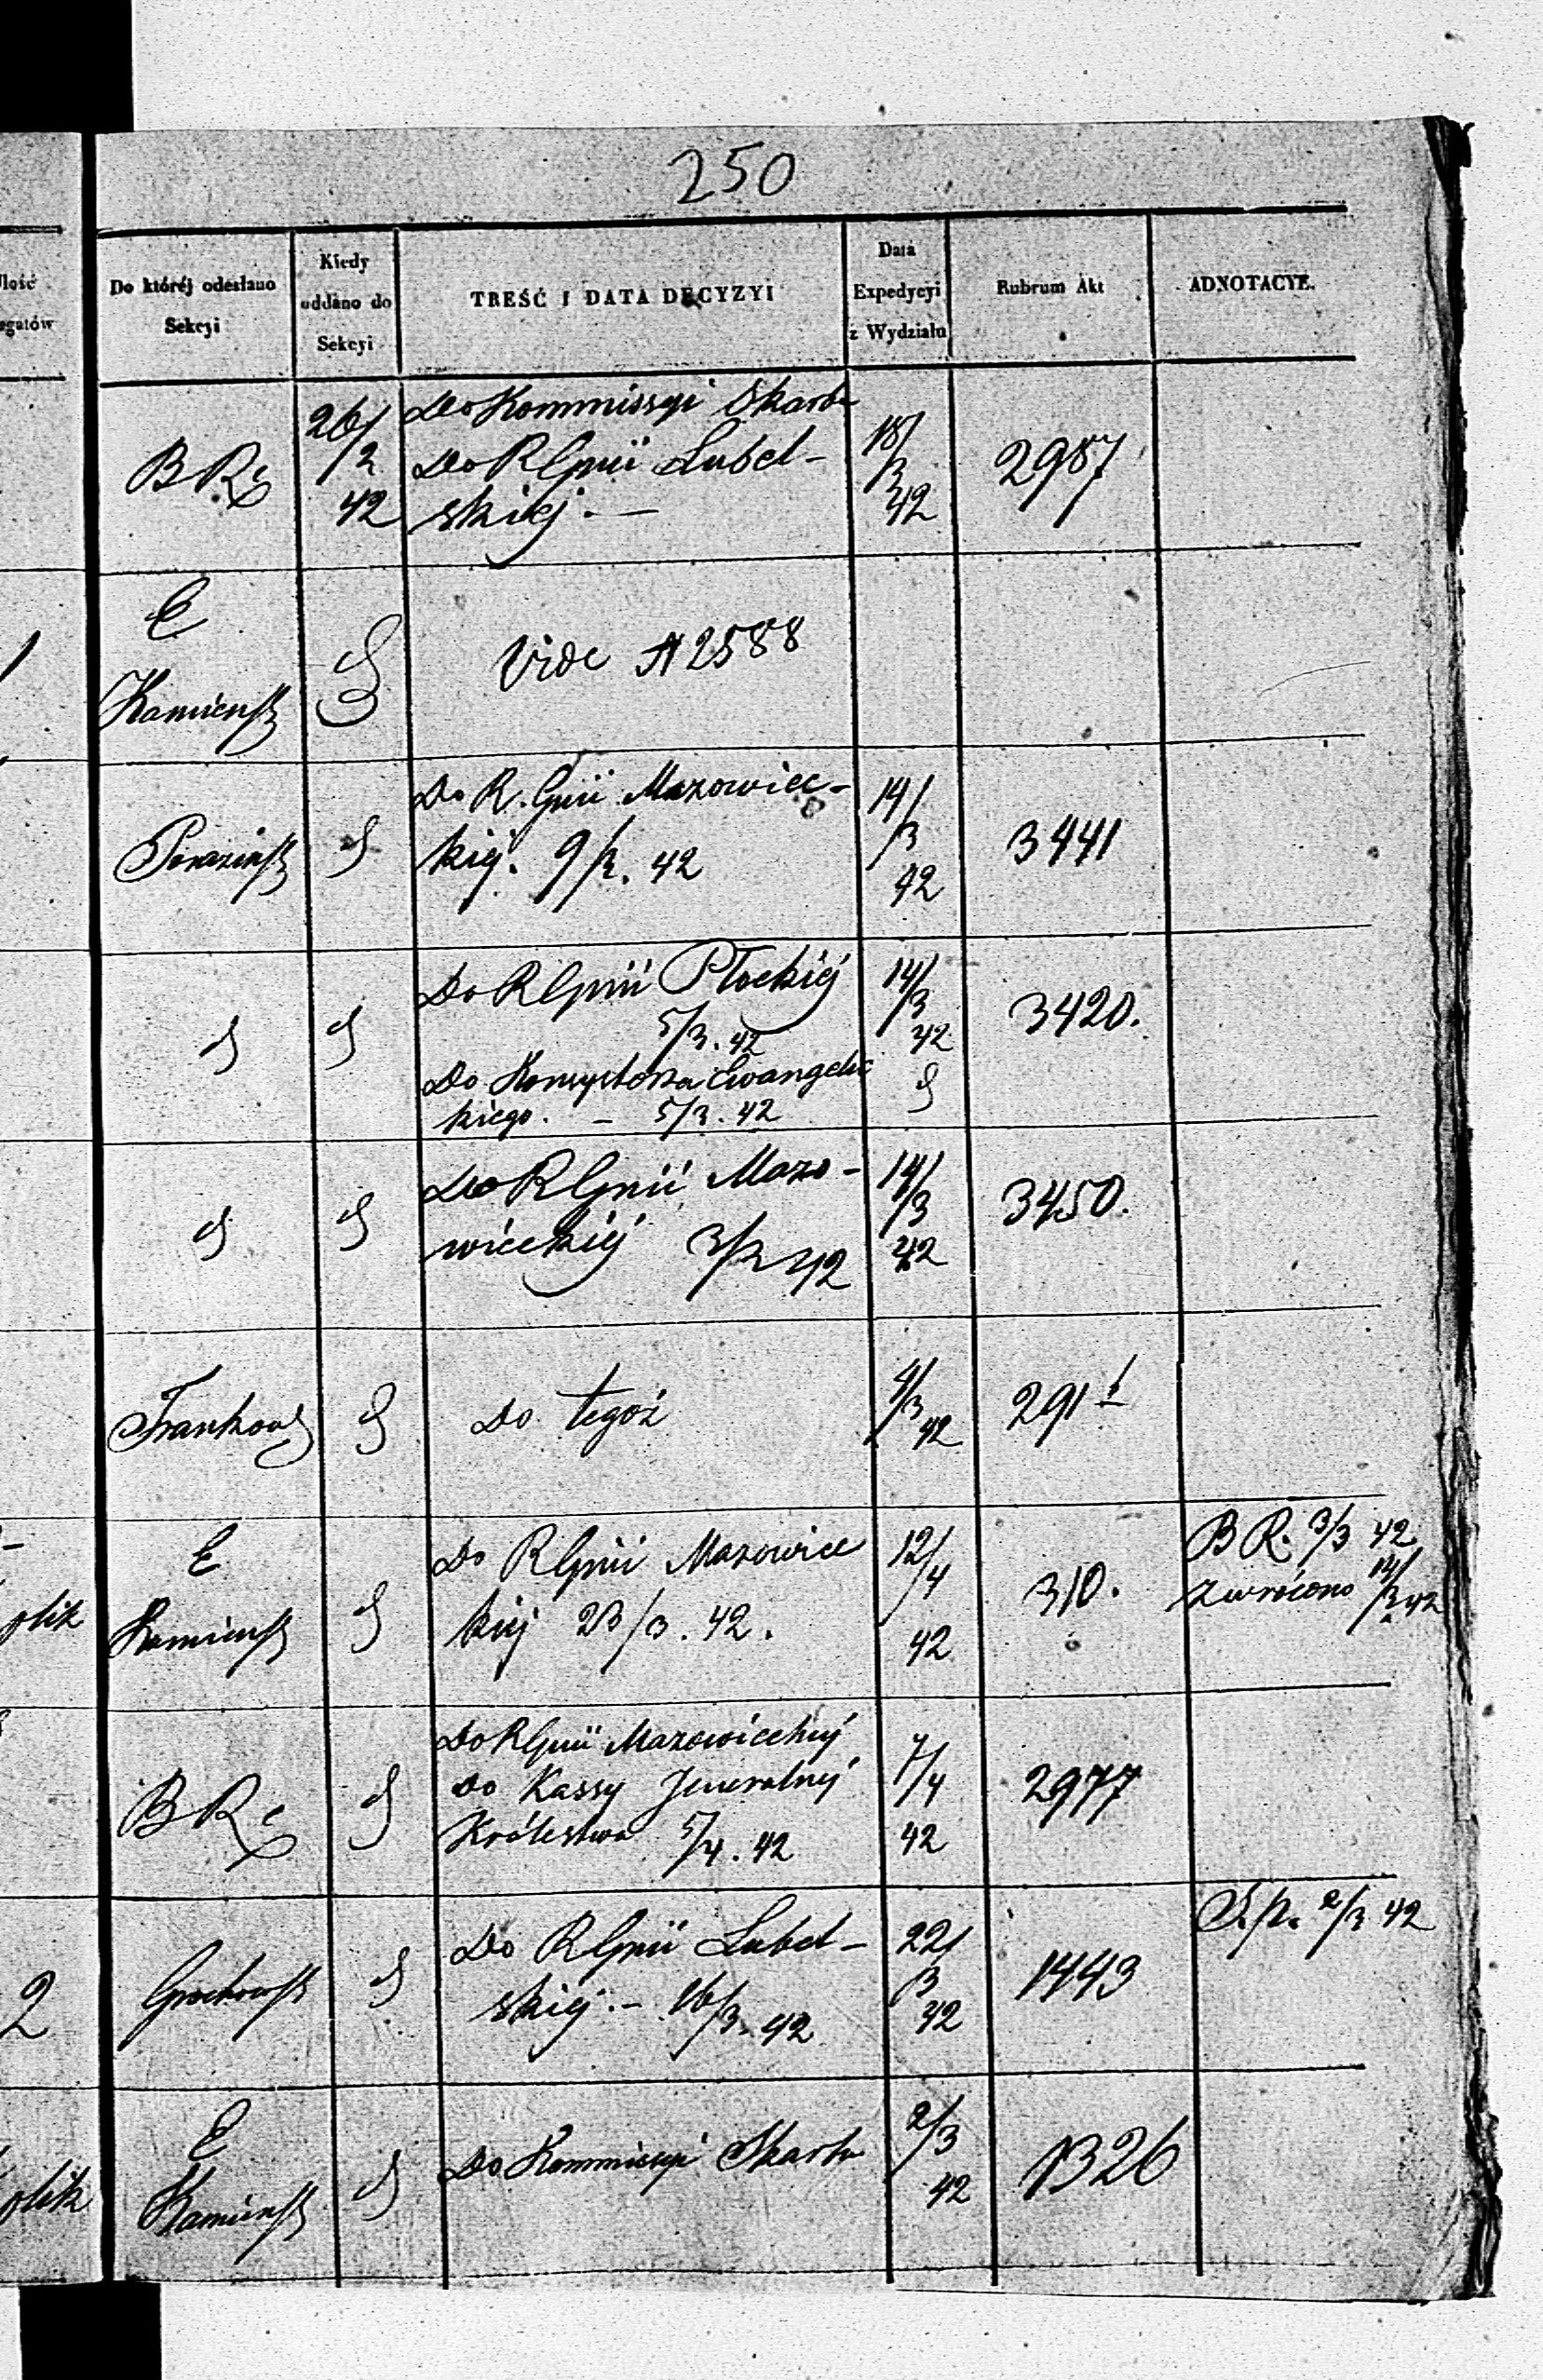 250
Ilość
egatów
Do któréj odesłano
Sekcyi
Kiedy
oddano do
Sekcyi
TREŚĆ I DATA DECYZYI
Data
Expedycyi
z Wydziału
Rubrum Akt
ADNOTACYE.
B R
26/2 42
Do Kommissyi Skarbu
Do R Gnii Lubel-
skiej. —
18/3 42
2987
E
Kamieńsk
Vide N 2588
Do R. Gnii Mazowiec-
kiej. 9/3. 42
14/3 42
3441
Do R Gnii Płockiej
5/3. 42
14/3 42
3420.
Do Konsystorza Ewangelic
kiego. — 5/3. 42
Do R Gnii Mazo-
wieckiej 3/3 42
14/3 42
3450.
Frankow
Do tegoż
4/3 42
291
E
Kamieńsk
Do R Gnii Mazowiec
kiej 23/3. 42.
12/4 42
310.
B R. 3/3 42
zwrócono 14/3 42
B R
Do R Gnii Mazowieckiej
do Kassy Jeneralnej
Królestwa 5/4. 42
7/4 42
2977
2
Grochowsk
Do R Gnii Lubel-
skiej. — 16/3. 42
22/3 42
1443
S. p. 2/3 42
E
Kamieńsk
Do Kommissyi Skarbu
2/3 42
1326